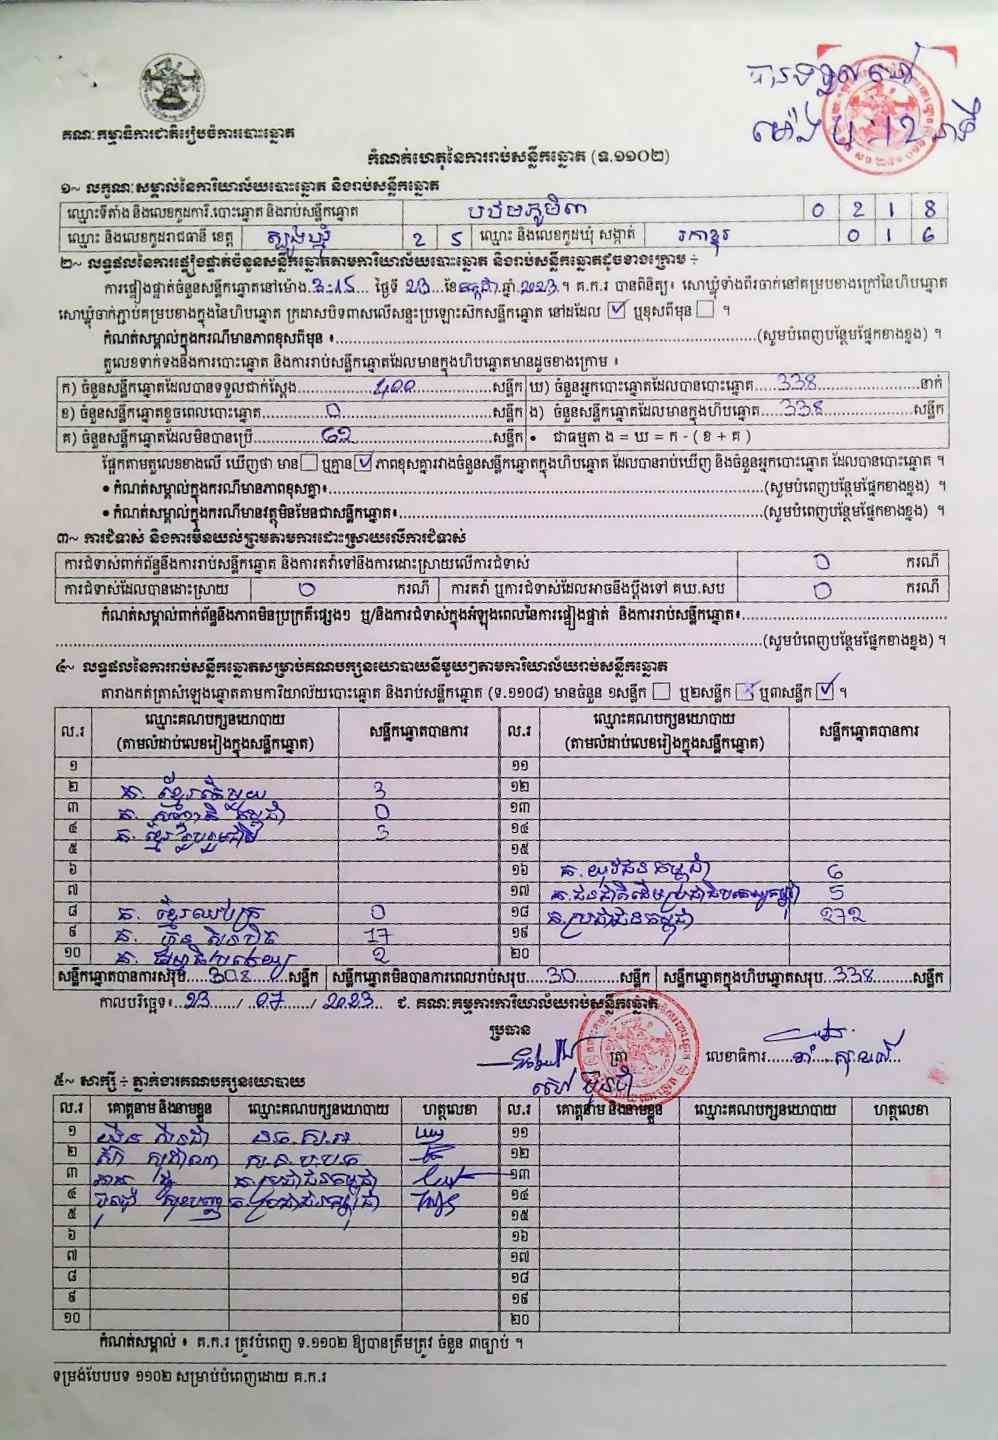 គណៈកម្មាធិការជាតិរៀបចំការបោះឆ្នោត
កំណត់ហេតុនៃការរាប់សន្លឹកឆ្នោត (ទ.១១០២)
១~ លក្ខណៈសម្គាល់នៃការិយាល័យបោះឆ្នោត និងរាប់សន្លឹកឆ្នោត
ឈ្មោះទីតាំង និងលេខកូដការិ.បោះឆ្នោត និងរាប់សន្លឹកឆ្នោត បឋមភូមិ៣ 0 2 1 8
ឈ្មោះ និងលេខកូដរាជធានី ខេត្ត ត្បូងឃ្មុំ 2 5 ឈ្មោះ និងលេខកូដឃុំ សង្កាត់ រកាខ្នុរ 0 1 6
២~ លទ្ធផលនៃការផ្ទៀងផ្ទាត់ចំនួនសន្លឹកឆ្នោតតាមការិយាល័យបោះឆ្នោត និងរាប់សន្លឹកឆ្នោតដូចខាងក្រោម ÷
ការផ្ទៀងផ្ទាត់ចំនួនសន្លឹកឆ្នោតនៅម៉ោង 3:15 ថ្ងៃទី 23 ខែ កក្កដា ឆ្នាំ 2023 ។ គ.ក.រ បានពិនិត្យ៖ សោឃ្មុំទាំងពីរចាក់នៅគម្របខាងក្រៅនៃហិបឆ្នោត
សោឃ្មុំចាក់ភ្ជាប់គម្របខាងក្នុងនៃហិបឆ្នោត ក្រដាសបិទពាសលើសន្ទះប្រឡោះស៊កសន្លឹកឆ្នោត នៅដដែល ☑ ឬខុសពីមុន ☐ ។
កំណត់សម្គាល់ក្នុងករណីមានភាពខុសពីមុន ៖ (សូមបំពេញបន្ថែមផ្នែកខាងខ្នង) ។
តួលេខទាក់ទងនឹងការបោះឆ្នោត និងការរាប់សន្លឹកឆ្នោតដែលមានក្នុងហិបឆ្នោតមានដូចខាងក្រោម ៖
ក) ចំនួនសន្លឹកឆ្នោតដែលបានទទួលជាក់ស្តែង 400 សន្លឹក ឃ) ចំនួនអ្នកបោះឆ្នោតដែលបានបោះឆ្នោត 338 នាក់
ខ) ចំនួនសន្លឹកឆ្នោតខូចពេលបោះឆ្នោត 0 សន្លឹក ង) ចំនួនសន្លឹកឆ្នោតដែលមានក្នុងហិបឆ្នោត 338 សន្លឹក
គ) ចំនួនសន្លឹកឆ្នោតដែលមិនបានប្រើ 62 សន្លឹក • ជាធម្មតា ង = ឃ = ក - ( ខ + គ )
ផ្អែកតាមតួលេខខាងលើ ឃើញថា មាន ☐ ឬគ្មាន ☑ ភាពខុសគ្នារវាងចំនួនសន្លឹកឆ្នោតក្នុងហិបឆ្នោត ដែលបានរាប់ឃើញ និងចំនួនអ្នកបោះឆ្នោត ដែលបានបោះឆ្នោត ។
• កំណត់សម្គាល់ក្នុងករណីមានភាពខុសគ្នា៖ (សូមបំពេញបន្ថែមផ្នែកខាងខ្នង) ។
• កំណត់សម្គាល់ក្នុងករណីមានវត្ថុមិនមែនជាសន្លឹកឆ្នោត៖ (សូមបំពេញបន្ថែមផ្នែកខាងខ្នង) ។
៣~ ការជំទាស់ និងការមិនយល់ព្រមតាមការដោះស្រាយលើការជំទាស់
ការជំទាស់ពាក់ព័ន្ធនឹងការរាប់សន្លឹកឆ្នោត និងការតវ៉ាទៅនឹងការដោះស្រាយលើការជំទាស់ 0 ករណី
ការជំទាស់ដែលបានដោះស្រាយ 0 ករណី ការតវ៉ា ឬការជំទាស់ដែលអាចនឹងប្តឹងទៅ គឃ.សប 0 ករណី
កំណត់សម្គាល់ពាក់ព័ន្ធនឹងភាពមិនប្រក្រតីផ្សេងៗ ឬ/និងការជំទាស់ក្នុងអំឡុងពេលនៃការផ្ទៀងផ្ទាត់ និងការរាប់សន្លឹកឆ្នោត៖
(សូមបំពេញបន្ថែមផ្នែកខាងខ្នង) ។
៤~ លទ្ធផលនៃការរាប់សន្លឹកឆ្នោតសម្រាប់គណបក្សនយោបាយនីមួយៗតាមការិយាល័យរាប់សន្លឹកឆ្នោត
តារាងកត់ត្រាសំឡេងឆ្នោតតាមការិយាល័យបោះឆ្នោត និងរាប់សន្លឹកឆ្នោត (ទ.១១០៨) មានចំនួន ១សន្លឹក ☐ ឬ២សន្លឹក ☐ ឬ៣សន្លឹក ☑ ។
ល.រ ឈ្មោះគណបក្សនយោបាយ (តាមលំដាប់លេខរៀងក្នុងសន្លឹកឆ្នោត) សន្លឹកឆ្នោតបានការ ល.រ ឈ្មោះគណបក្សនយោបាយ (តាមលំដាប់លេខរៀងក្នុងសន្លឹកឆ្នោត) សន្លឹកឆ្នោតបានការ
១ ១១
២ គ. ខ្មែរតែមួយ 3 ១២
៣ 0 ១៣
៤ គ. ខ្មែររួបរួមជាតិ 3 ១៤
៥ ១៥
៦ ១៦ គ. យុវជនកម្ពុជា 6
៧ ១៧ គ. ជនជាតិដើមប្រជាធិបតេយ្យកម្ពុជា 5
៨ គ. ខ្មែរឈប់ក្រ 0 ១៨ គ. ប្រជាជនកម្ពុជា 272
៩ គ. ហ្វ៊ុនស៊ិនប៉ិច 17 ១៩
១០ 2 ២០
សន្លឹកឆ្នោតបានការសរុប 308 សន្លឹក សន្លឹកឆ្នោតមិនបានការពេលរាប់សរុប 30 សន្លឹក សន្លឹកឆ្នោតក្នុងហិបឆ្នោតសរុប 338 សន្លឹក
កាលបរិច្ឆេទ៖ 23 / 07 / 2023 ជ. គណៈកម្មការការិយាល័យរាប់សន្លឹកឆ្នោត
ប្រធាន
ត្រា លេខាធិការ
៥~ សាក្សី ÷ ភ្នាក់ងារគណបក្សនយោបាយ
ល.រ គោត្តនាម និងនាមខ្លួន ឈ្មោះគណបក្សនយោបាយ ហត្ថលេខា ល.រ គោត្តនាម និងនាមខ្លួន ឈ្មោះគណបក្សនយោបាយ ហត្ថលេខា
១ ១១
២ ១២
៣ គ. ប្រជាជនកម្ពុជា ១៣
៤ គ. ប្រជាជនកម្ពុជា ១៤
៥ ១៥
៦ ១៦
៧ ១៧
៨ ១៨
៩ ១៩
១០ ២០
កំណត់សម្គាល់ ៖ គ.ក.រ ត្រូវបំពេញ ទ.១១០២ ឱ្យបានត្រឹមត្រូវ ចំនួន ៣ច្បាប់ ។
ទម្រង់បែបបទ ១១០២ សម្រាប់បំពេញដោយ គ.ក.រ